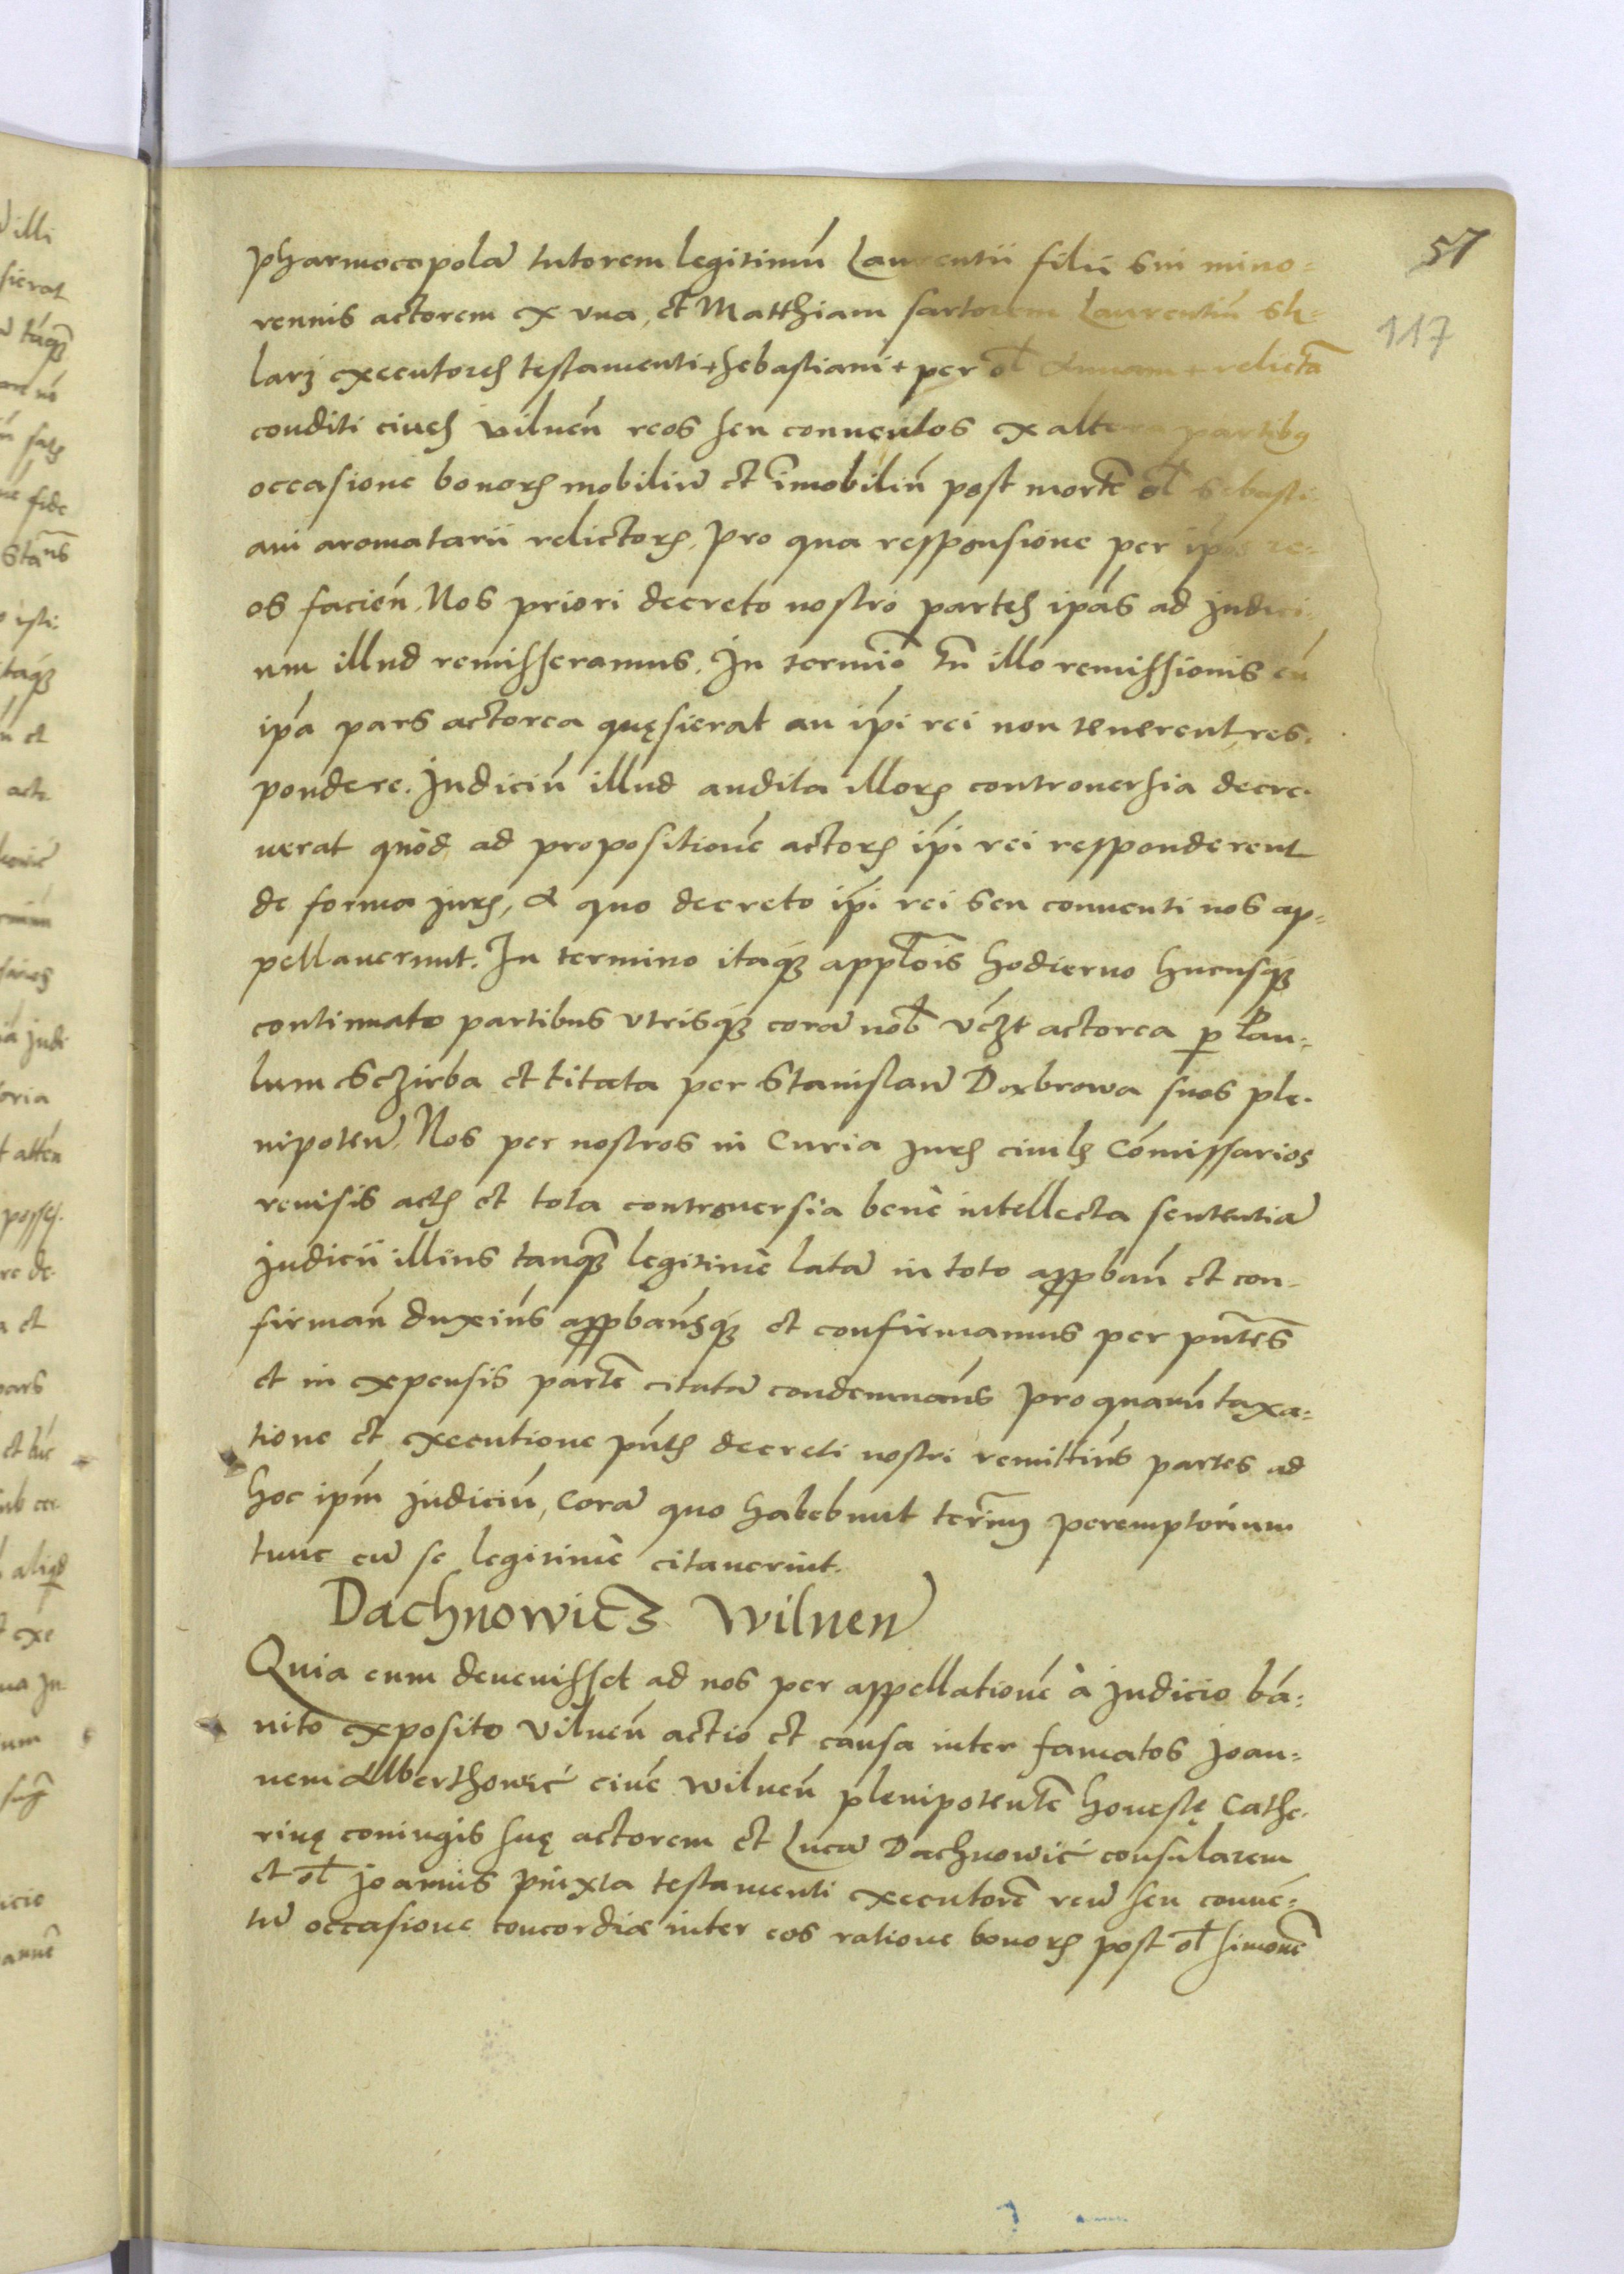 57
117
pharmocopolã tutorem legitimũ Laurentii filii sui mino=
rennis actorem ex vna, et Matthiam sartorem Laurentiũ sk=
larz executores testamenti + Sebastiani + per ol Annam + relictã
conditi ciues vilneñ reos seu conuentos ex altera partibg
occasione bonorꝝ mobiliũ et im̃obiliũ post mortẽ ol Sebasti-
ani aromatarii relictorꝝ, pro qua responsione per ip̃os re-
os facieñ, Nos priori decreto nostro partes ip̃as ad judici-
um illud remisseramus. In termiño tñ illo remissionis cũ
ip̃a pars actorea quęsierat an ip̃i rei non tenerent res-
pondere. Judiciũ illud audita illorꝝ controuersia decre-
uerat quòd ad propositionẽ actorꝝ ip̃i rei responderent
de forma juris, A quo decreto ip̃i rei seu conuenti nos ap=
pellauerunt. In termino itaqꝫ appl̃ois hodierno hucusqꝫ
continuato partibus vtrisqꝫ corã nob vcꝫt actorea ꝑ Pau-
lum Sczirba et citata per Stanislaũ Doxbrowa suos ple-
nipoteñ, Nos per nostros in Curia juris ciuilis Com̃issarios
reuisis actis et tota controuersia benè intellecta sententiã
judicii illius tanqꝫ legitimè latã in toto appbañ et con-
firmañ duxim̃s appbam̃sqꝫ et confirmamus per pñtes
et in expensis partẽ citatã condemnam̃s pro quarũ taxa=
tione et executione pñtis decreti nostri remittim̃s partes ad
hoc ipm̃ judiciũ, Corã quo habebunt termiñ peremptorium
tunc cũ se legitimè citauerint.
Dachnowicz Wilnen
Quia cum deuenisset ad nos per appellationẽ à judicio bã=
nito exposito Vilneñ actio et causa inter famatos Joan=
nem Alberthowić ciuẽ Wilneñ plenipotentẽ honestę Cathe-
rinę coniugis suę actorem et Lucã Dachnowić consularem
et ol Joannis Pnixta testamenti executorẽ reũ seu conuẽ=
tũ occasione concordiæ inter eos ratione bonorꝝ post ol Simonẽ